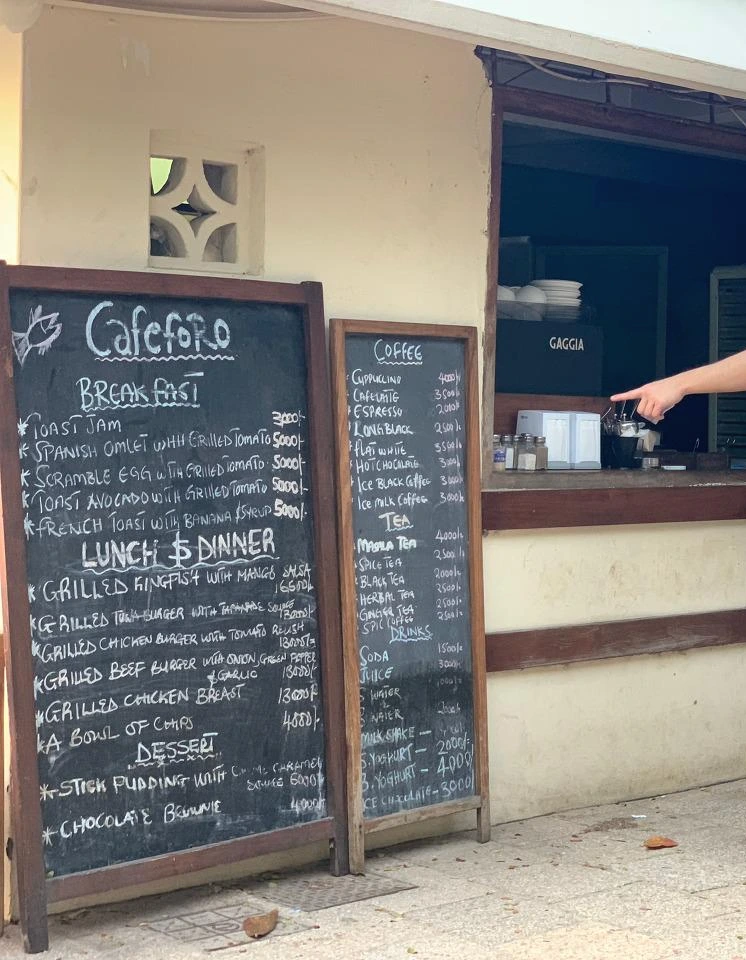 Cafeforo
BREAKFAST
* TOAST JAM 3000/-
* SPANISH OMLET WITH GRILLED TOMATO 5000/-
* SCRAMBLE EGG WITH GRILLED TOMATO 5000/-
* TOAST AVOCADO WITH GRILLED TOMATO 5000/-
* FRENCH TOAST WITH BANANA & SYRUP 5000/-
LUNCH $ DINNER
* GRILLED KINGFISH WITH MANGO SALSA
16500/-
* GRILLED TUNA BURGER WITH TAPANADE SOUCE
13000/-
* GRILLED CHICKEN BURGER WITH TOMATO RELISH
13000/=
* GRILLED BEEF BURGER WITH ONION, GREEN PEPPER
& GARLIC 13000/-
* GRILLED CHICKEN BREAST 13000/-
* A BOWL OF CHIPS 4000/-
DESSERT
* STICK PUDDING WITH CARAMEL
SAUCE 6000/-
* CHOCOLATE BROWNIE 4000/-
COFFEE
CUPPUCCINO 4000/-
CAFELATTE 3500/-
ESPRESSO 2000/-
LONG BLACK 2500/-
FLAT WHITE 3500/-
HOT CHOCOLATE 3000/-
ICE BLACK COFFEE 3000/-
ICE MILK COFFEE 3000/-
TEA
MASALA TEA 4000/=
SPICE TEA 2500/-
BLACK TEA 2000/=
HERBAL TEA 3500/=
GINGER TEA 2500/=
SPIC COFFEE 2500/=
DRINKS
SODA 1500/=
JUICE 3000/-
S WATER 1000/=
B WATER 2000/-
MILK SHAKE —
S. YOGHURT — 2000/-
B. YOGHURT — 4000/-
ICE CHOCOLATE — 3000/-
GAGGIA